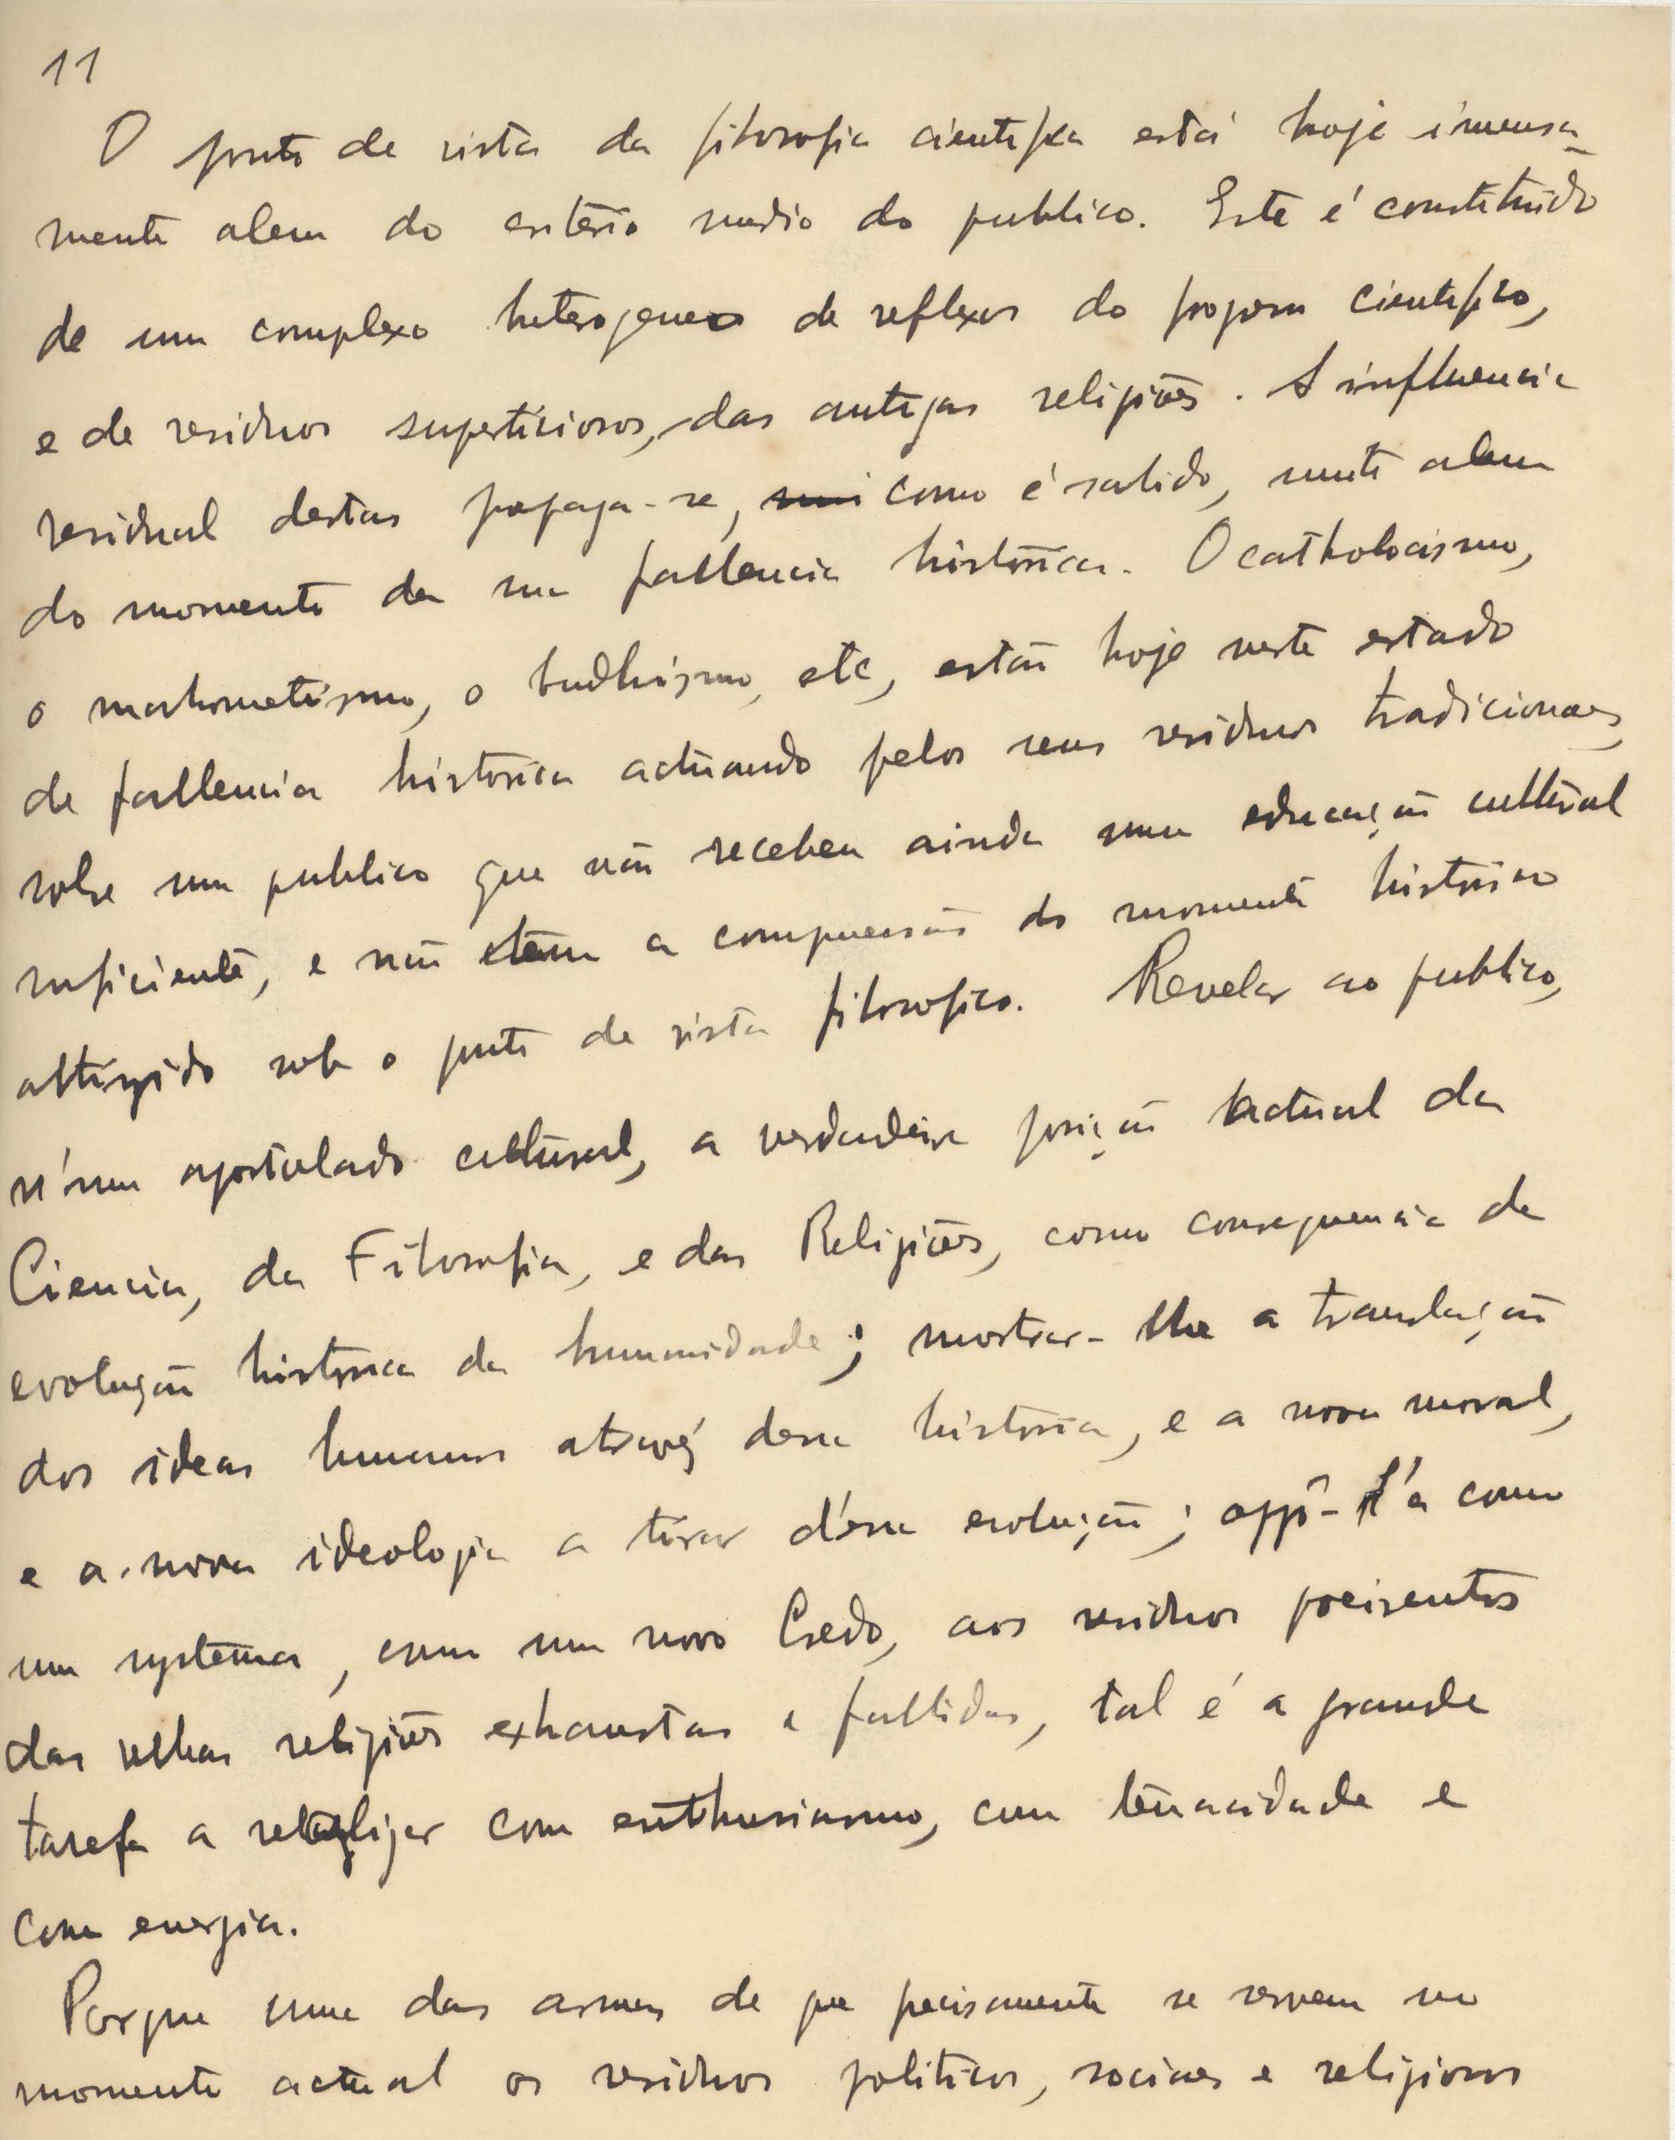 11
O ponto de vista da filosofia cientifica está hoje imensa-
mente alem do criterio medio do publico. Este é constituido
de um complexo heterogeneo de reflexos do progresso cientifico,
e de residuos supersticiosos, das antigas religiões. A influencia
residual destas propaga-se, como é sabido, muito alem
do momento da sua fallencia historica. O catholocismo,
o mahometismo, o budhismo, etc, estão hoje neste estado
de fallencia historica actuando pelos seus residuos tradicionaes,
sobre um publico que não recebeu ainda uma educação cultural
suficiente, e não tem a compreensão do momento historico
attingido sob o ponto de vista filosofico. Revelar ao publico,
n'um apostolado cultural, a verdadeira posição actual da
Ciencia, da Filosofia, e das Religiões, como consequencia da
evolução historica da humanidade; mostrar-lhe a translação
dos ideas humanos atravéz dessa historia, e a nova moral,
e a nova ideologia a tirar d'essa evolução; oppô-l'a como
um systema, como um novo Credo, aos residuos
das velhas religiões exhaustas e fallidas, tal é a grande
tarefa a realizar com enthusiasmo, com tenacidade e
com energia.
Porque uma das armas de que precisamente se servem no
momento actual os residuos politicos, sociaes e religiosos